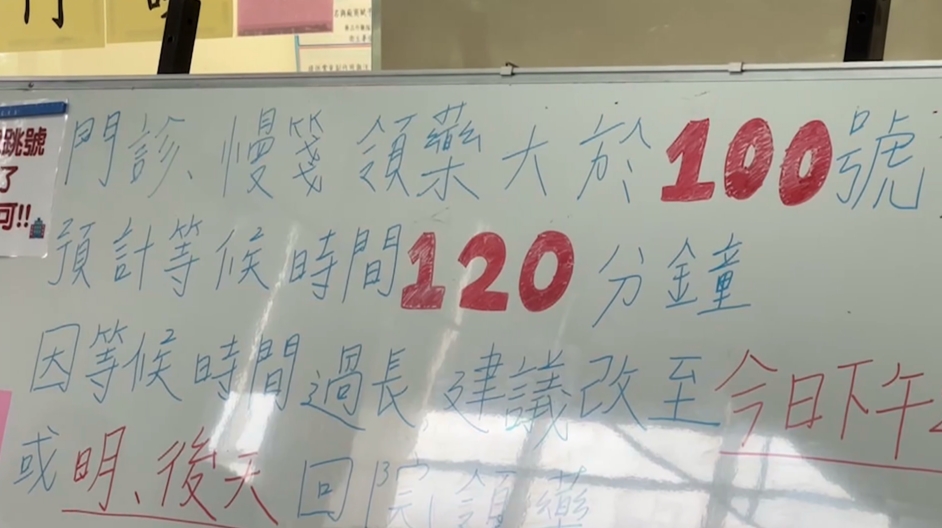 跳號
了
可!!
門診、慢箋領藥大於100號
預計等候時間120分鐘
因等候時間過長,建議改至今日下午
或明、後天回院領藥